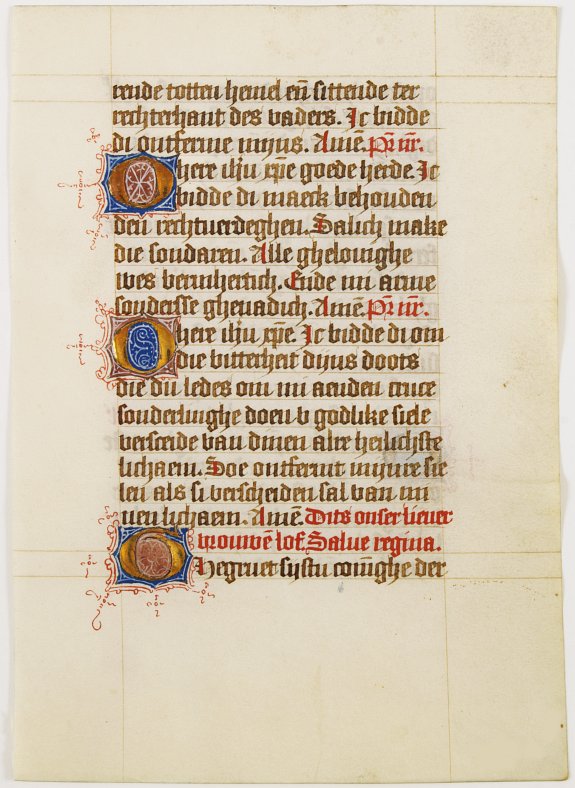 rende totten hemel eñ sittende ter
rechterhant des vaders. Ic bidde
di ontferme mijns. Amē. Pr̄ nr̄.
O here ihu xp̄e goede herde. Ic
bidde di maeck behouden
den rechtuerdeghen. Salich make
die sondaren. Alle ghelouighe
wes bermhertich. Ende mi arme
sondersse ghenadich. Amē. Pr̄ nr̄.
O here ihu xp̄e. Ic bidde di om
die bitterheit dijns doots
die du ledes om mi aenden cruce
sonderlinghe doen v godlike siele
versceide van dinen alre heilichste
lichaem. Soe ontfermt mijnre sie
len als si verscheiden sal van mi
nen lichaem. Amē. Dits onser lieuer
vrouwē lof. Salue regina.
Ghegruet sijstu coniġhe der